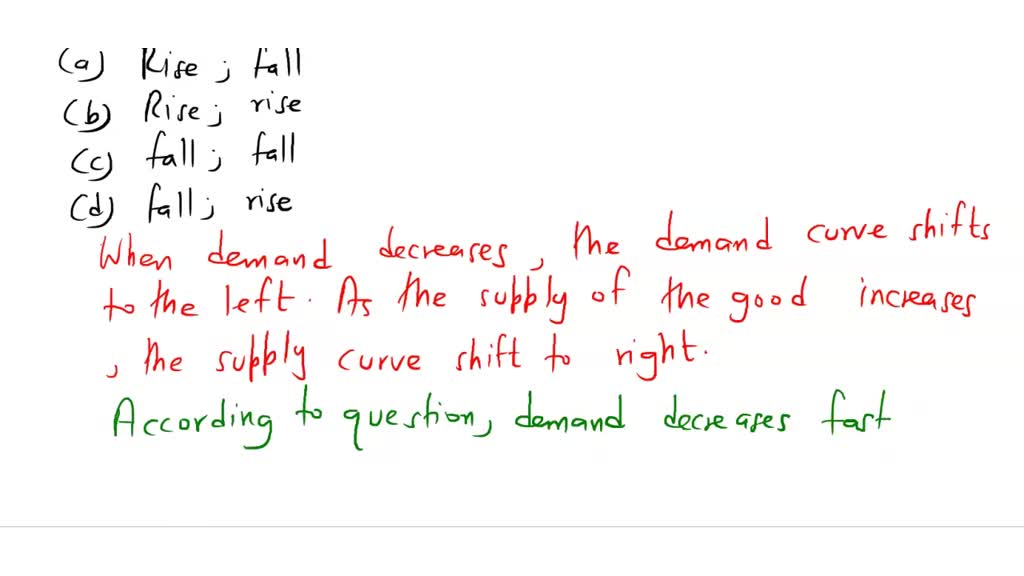 (a) Rise ; fall
(b) Rise ; rise
(c) fall ; fall
(d) fall ; rise
When demand decreases, the demand curve shifts
to the left. As the supply of the good increases
, the supply curve shift to right.
According to question, demand decreases fast